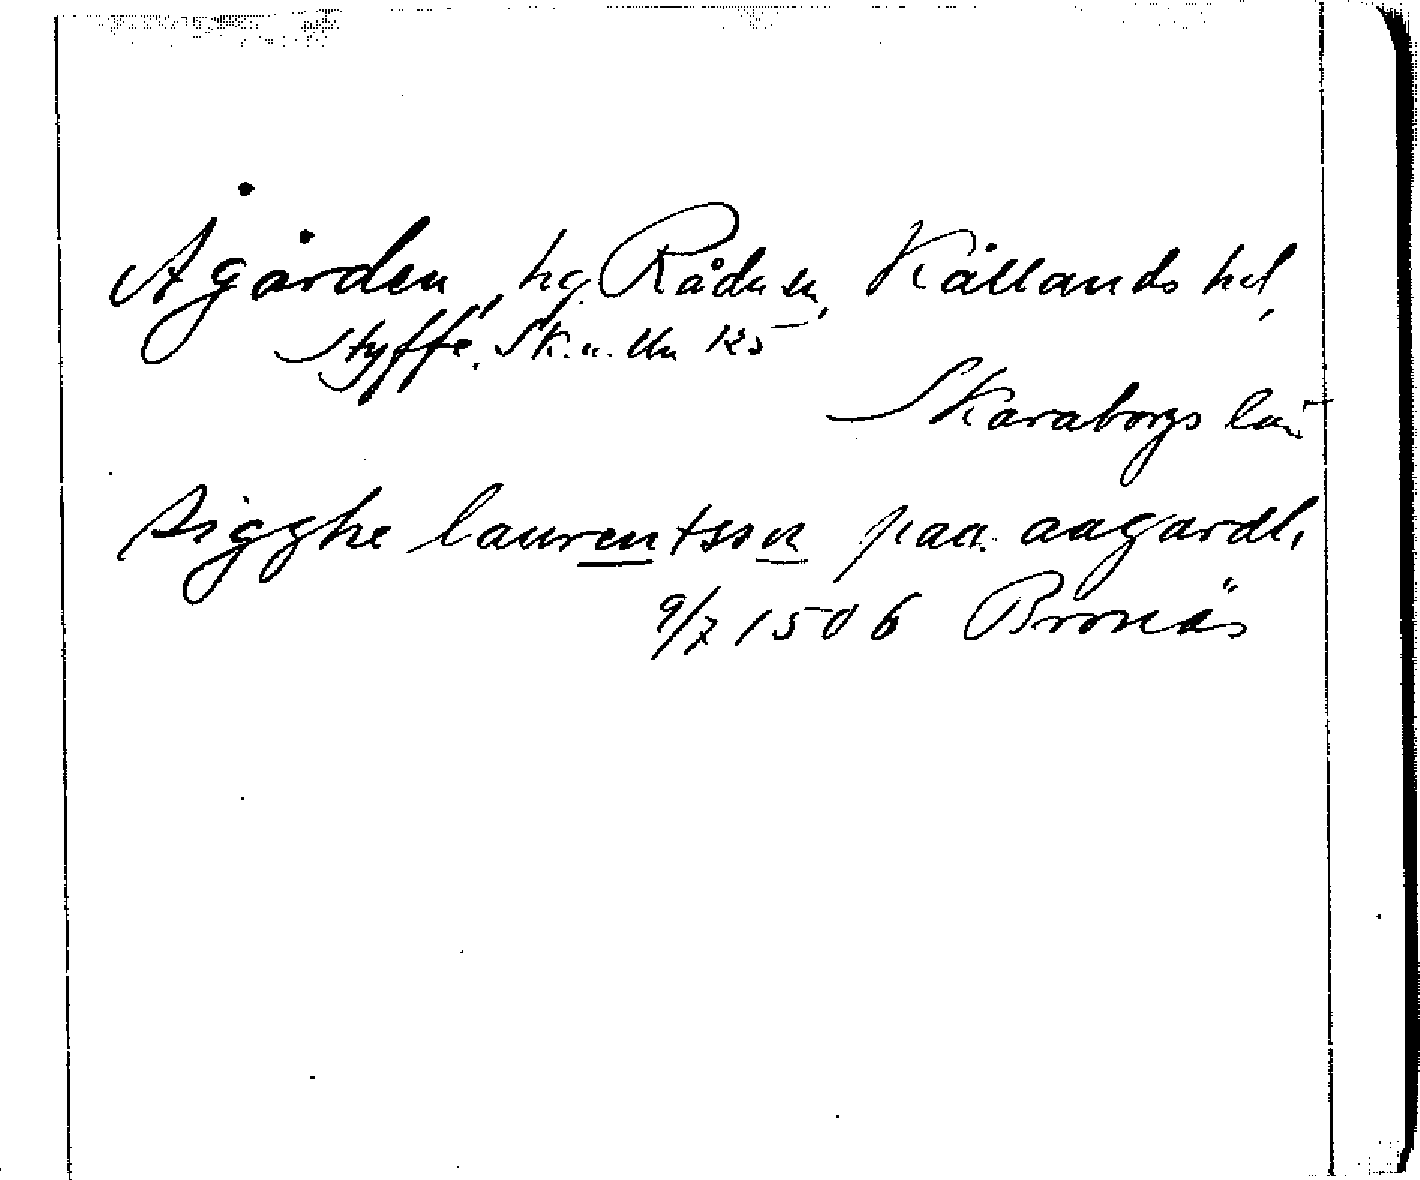 Ågården, hg. Råda sn, Kållands hd,
Styffe, Sk. u. Un 125
Skaraborgs län
sigghe laurentsson paa aagardh,
9/7 1506 Bronäs